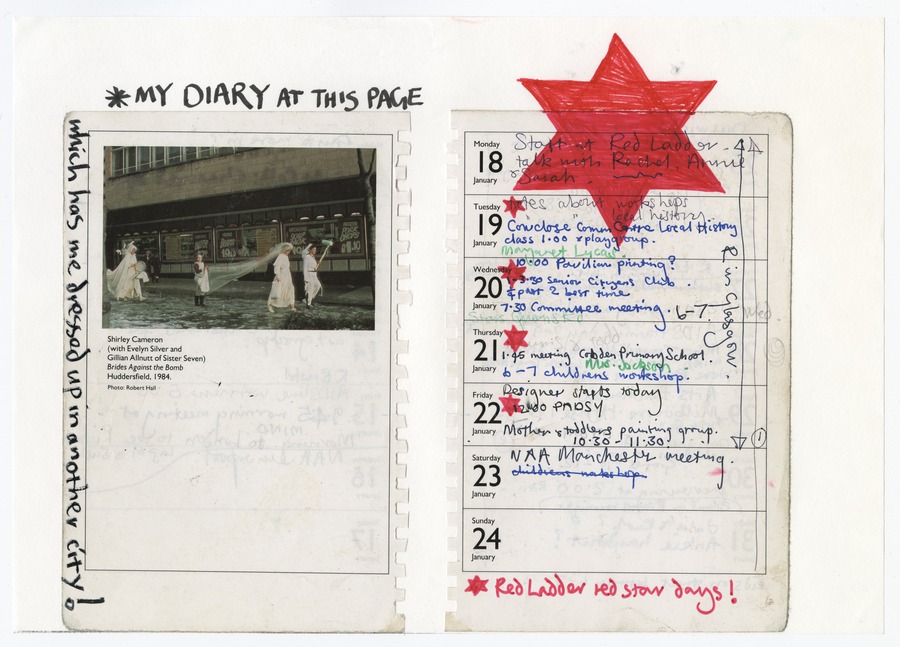 *MY DIARY AT THIS PAGE
which has me dressed up in another city!
Shirley Cameron
(with Evelyn Silver and
Gillian Allnutt of Sister Seven)
Brides Against the Bomb
Huddersfield, 1984.
Photo: Robert Hall
Monday
18
January
Start at Red Ladder -
talk with Rachel, Annie
& Sarah.
Tuesday
19
January
about workshops
" local history.
Comm Centre Local History
class 1.00 & playgroup.
Margaret Lycas.
Wednesday
20
January
10.00 Pavilion printing?
1-3.30 Senior Citizens Club.
& part 2 best time
7.30 Committee meeting. 6-7.
Thursday
21
January
1.45 meeting Cobden Primary School.
Mrs. Jackson.
6-7 childrens workshop.
Friday
22
January
Designer starts today
12.00 PADSY
Mother & toddlers painting group.
10.30 - 11.30
Saturday
23
January
NAA Manchester meeting.
childrens workshop.
Sunday
24
January
R in Glasgow.
1
Red Ladder red star days!